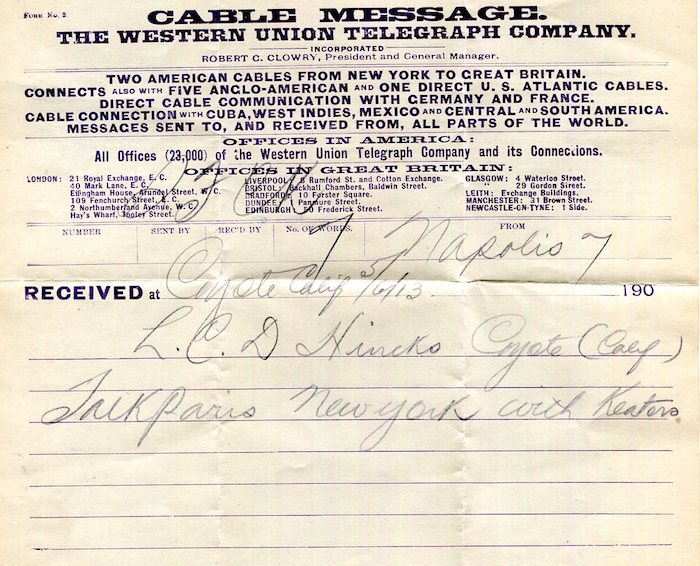 Form No. 2
CABLE MESSAGE.
THE WESTERN UNION TELEGRAPH COMPANY.
INCORPORATED
ROBERT C. CLOWRY, President and General Manager.
TWO AMERICAN CABLES FROM NEW YORK TO GREAT BRITAIN.
CONNECTS ALSO WITH FIVE ANGLO-AMERICAN AND ONE DIRECT U. S. ATLANTIC CABLES.
DIRECT CABLE COMMUNICATION WITH GERMANY AND FRANCE.
CABLE CONNECTION WITH CUBA, WEST INDIES, MEXICO AND CENTRAL AND SOUTH AMERICA.
MESSAGES SENT TO, AND RECEIVED FROM, ALL PARTS OF THE WORLD.
OFFICES IN AMERICA:
All Offices (23,000) of the Western Union Telegraph Company and its Connections.
OFFICES IN GREAT BRITAIN:
LONDON: 21 Royal Exchange, E. C.
40 Mark Lane, E. C.
Effingham House, Arundel Street, W. C.
109 Fenchurch Street, E. C.
2 Northumberland Avenue, W. C.
Hay's Wharf, Tooley Street.
LIVERPOOL: 8 Rumford St. and Cotton Exchange.
BRISTOL: Backhall Chambers, Baldwin Street.
BRADFORD: 10 Forster Square.
DUNDEE: Panmure Street.
EDINBURGH: 50 Frederick Street.
GLASGOW: 4 Waterloo Street.
" 29 Gordon Street.
LEITH: Exchange Buildings.
MANCHESTER: 31 Brown Street.
NEWCASTLE-ON-TYNE: 1 Side.
NUMBER SENT BY REC'D BY No. OF WORDS. FROM
Napolis 7
RECEIVED at Coyote Calif 5/6/13 190
L. C. D Hincks Coyote (Calif)
Jackparis New york with Keaters